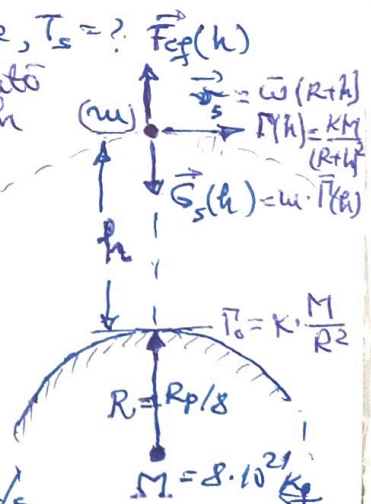 , T_s = ? F⃗_cf(h)
(m) v⃗_s = ω(R+h)
Γ(h) = KM/(R+h)²
G⃗_s(h) = m·Γ⃗(h)
h
Γ₀ = K·M/R²
R = Rp/8
M = 8·10²¹ Kg